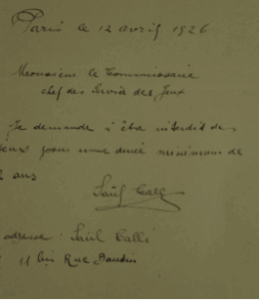 Paris le 12 avril 1926
Monsieur le Commissaire
chef des Service des Jeux
Je demande à être interdit de
jeux pour une durée minimum de
2 ans
Saül Calle
adresse : Saül Calle
11 bis Rue